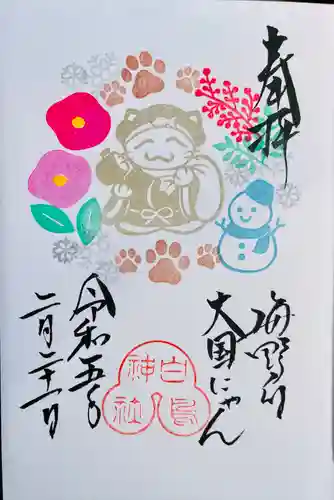 奉拝
海野
大国にゃん
白鳥神社
令和五年
二月二十一日